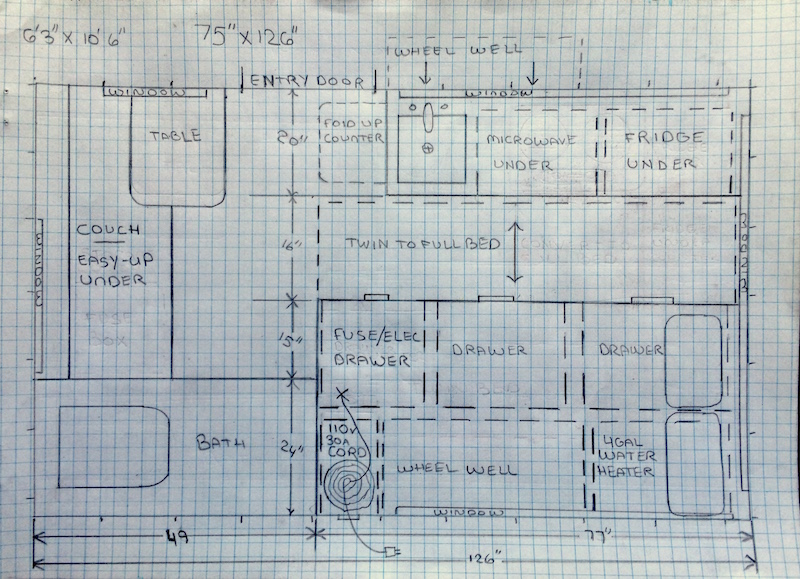 6'3" X 10'6"
75" X 126"
WHEEL WELL
ENTRY DOOR
WINDOW
WINDOW
TABLE
20"
FOLD UP
COUNTER
MICROWAVE
UNDER
FRIDGE
UNDER
COUCH
EASY-UP
UNDER
WINDOW
16"
TWIN TO FULL BED
WINDOW
FUSE
BOX
15"
FUSE/ELEC
DRAWER
DRAWER
DRAWER
BATH
24"
110V
30A
CORD
WHEEL WELL
4GAL
WATER
HEATER
WINDOW
49
77"
126"